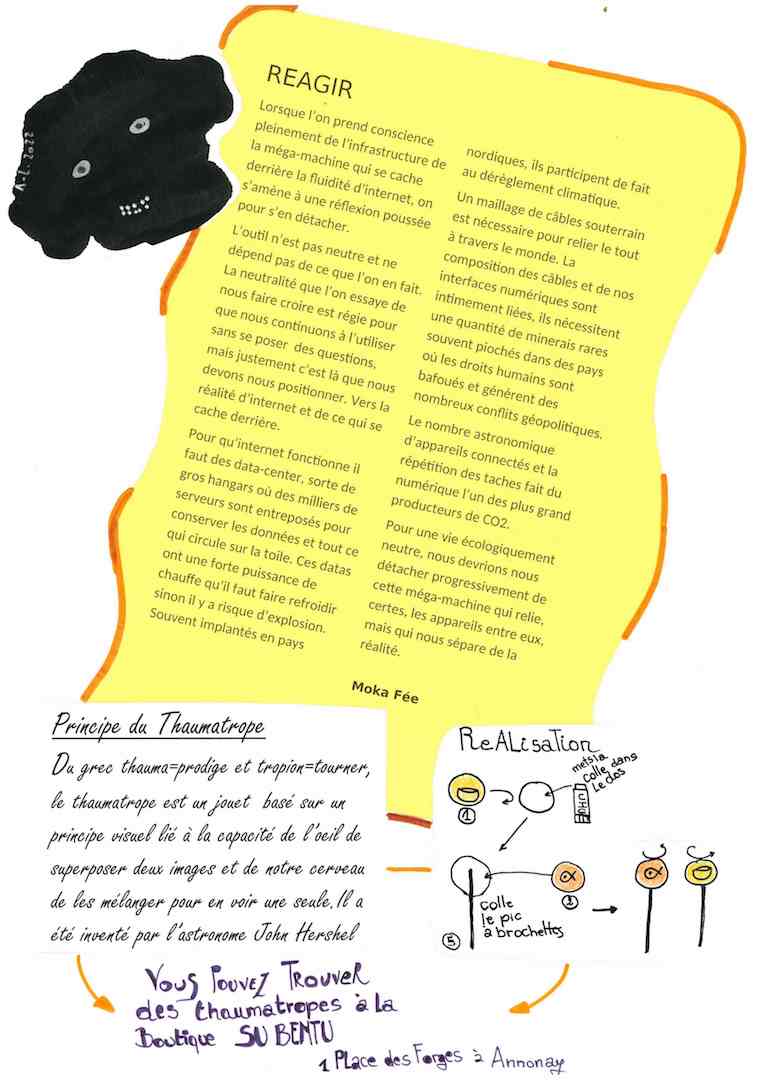 A-L. 2022
REAGIR
Lorsque l'on prend conscience
pleinement de l'infrastructure de
la méga-machine qui se cache
derrière la fluidité d'internet, on
s'amène à une réflexion poussée
pour s'en détacher.
L'outil n'est pas neutre et ne
dépend pas de ce que l'on en fait.
La neutralité que l'on essaye de
nous faire croire est régie pour
que nous continuons à l'utiliser
sans se poser des questions,
mais justement c'est là que nous
devons nous positionner. Vers la
réalité d'internet et de ce qui se
cache derrière.
Pour qu'internet fonctionne il
faut des data-center, sorte de
gros hangars où des milliers de
serveurs sont entreposés pour
conserver les données et tout ce
qui circule sur la toile. Ces datas
ont une forte puissance de
chauffe qu'il faut faire refroidir
sinon il y a risque d'explosion.
Souvent implantés en pays
nordiques, ils participent de fait
au dérèglement climatique.
Un maillage de câbles souterrain
est nécessaire pour relier le tout
à travers le monde. La
composition des câbles et de nos
interfaces numériques sont
intimement liées, ils nécessitent
une quantité de minerais rares
souvent piochés dans des pays
où les droits humains sont
bafoués et génèrent des
nombreux conflits géopolitiques.
Le nombre astronomique
d'appareils connectés et la
répétition des taches fait du
numérique l'un des plus grand
producteurs de CO2.
Pour une vie écologiquement
neutre, nous devrions nous
détacher progressivement de
cette méga-machine qui relie,
certes, les appareils entre eux,
mais qui nous sépare de la
réalité.
Moka Fée
Principe du Thaumatrope
Du grec thauma=prodige et tropion=tourner,
le thaumatrope est un jouet basé sur un
principe visuel lié à la capacité de l'oeil de
superposer deux images et de notre cerveau
de les mélanger pour en voir une seule. Il a
été inventé par l'astronome John Hershel
ReALisation
mets la
colle dans
Le dos
UHU
1
colle
le pic
a brochettes
5
Vous Pouvez Trouver
des thaumatropes à La
Boutique SU BENTU
1 PLace des Forges à Annonay